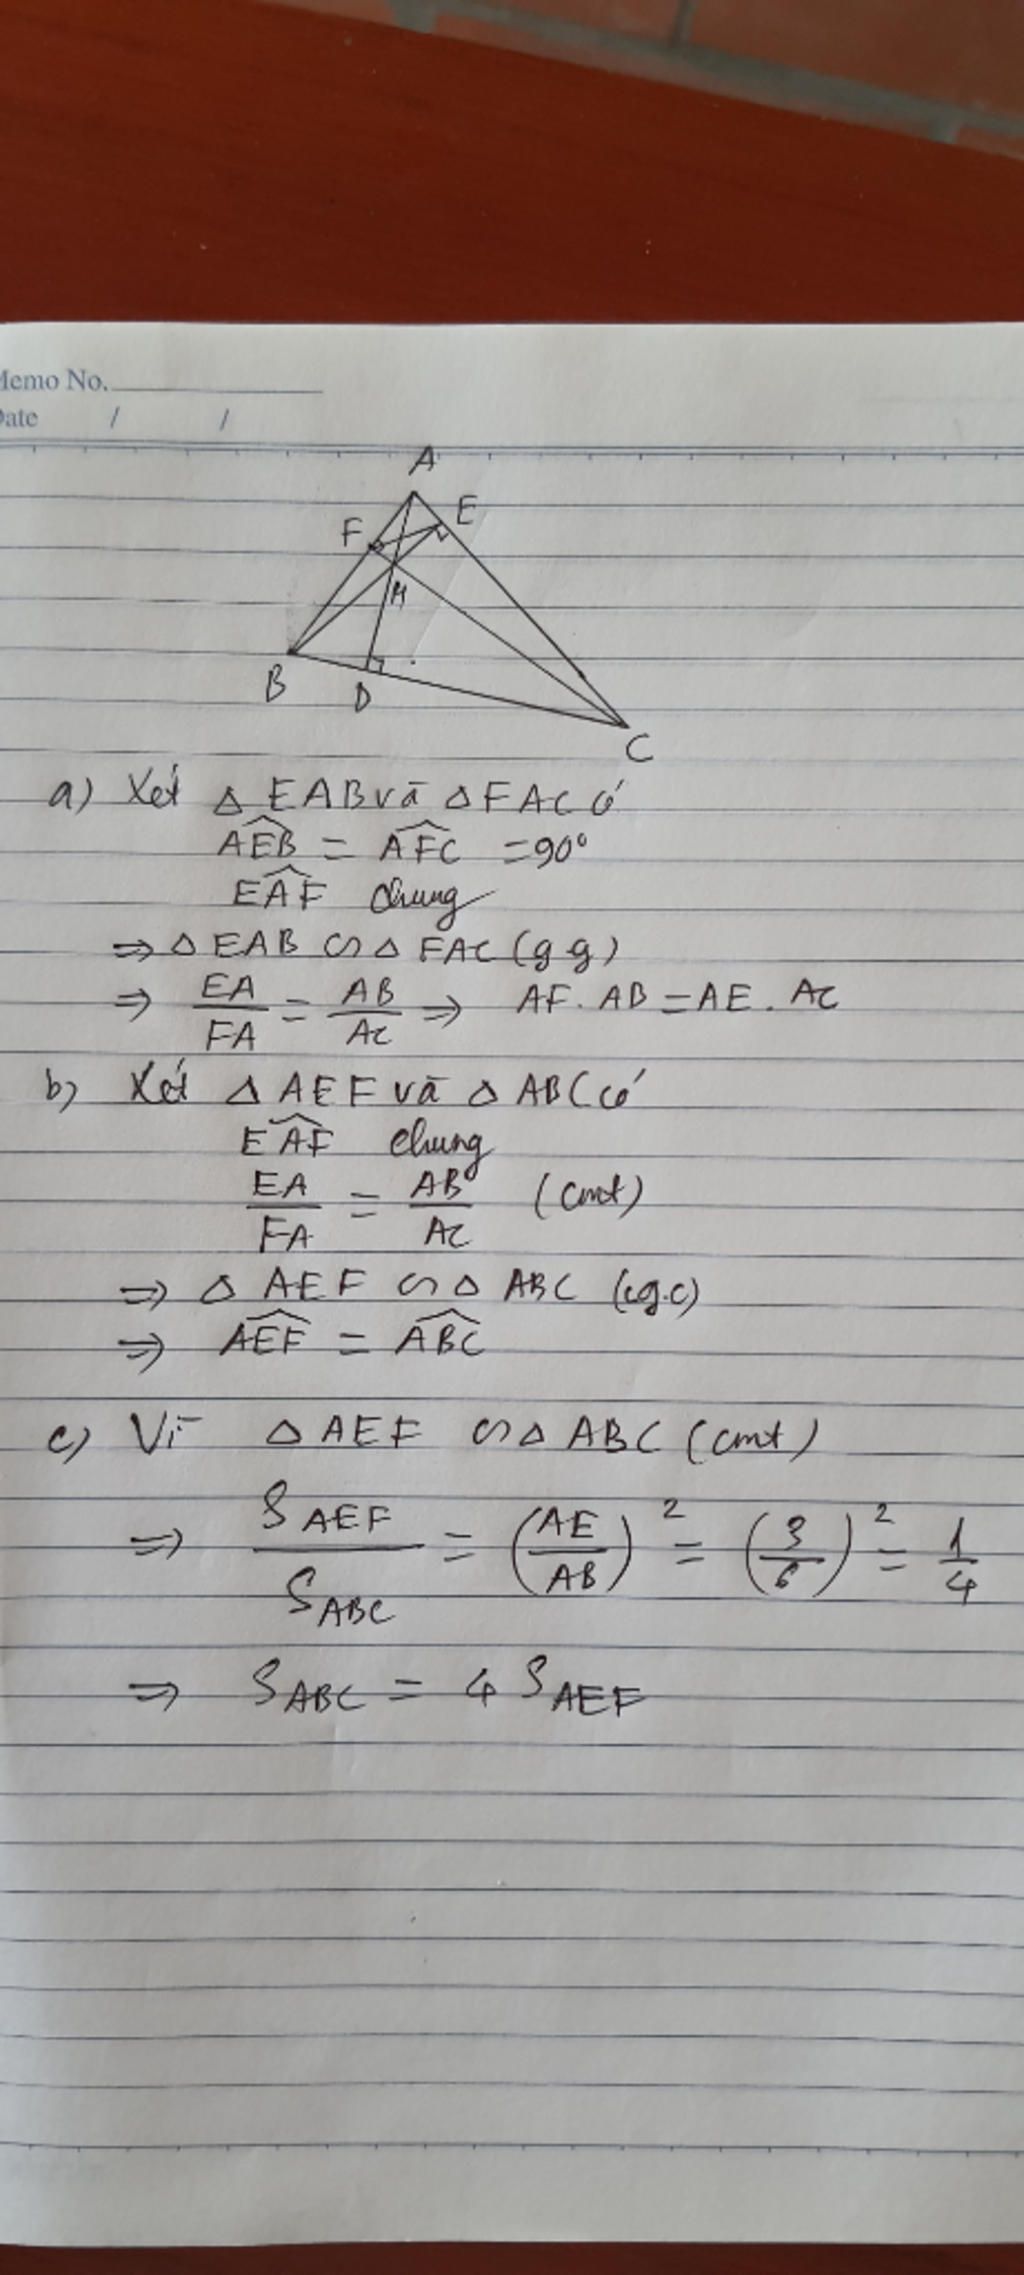 Memo No.
Date / /
A
F E
H
B D
C
a) Xét △ EAB và △ FAC có
$\widehat{AEB}$ = $\widehat{AFC}$ = 90°
$\widehat{EAF}$ chung
⇒ △ EAB ∽ △ FAC (g g)
⇒ $\frac{EA}{FA}$ = $\frac{AB}{AC}$ ⇒ AF. AB = AE. AC
b) Xét △ AEF và △ ABC có
$\widehat{EAF}$ chung
$\frac{EA}{FA}$ = $\frac{AB}{AC}$ (cmt)
⇒ △ AEF ∽ △ ABC (cg.c)
⇒ $\widehat{AEF}$ = $\widehat{ABC}$
c) Vì △ AEF ∽ △ ABC (cmt)
⇒ $\frac{S_{AEF}}{S_{ABC}}$ = $\left(\frac{AE}{AB}\right)^2$ = $\left(\frac{3}{6}\right)^2$ = $\frac{1}{4}$
⇒ $S_{ABC}$ = 4 $S_{AEF}$